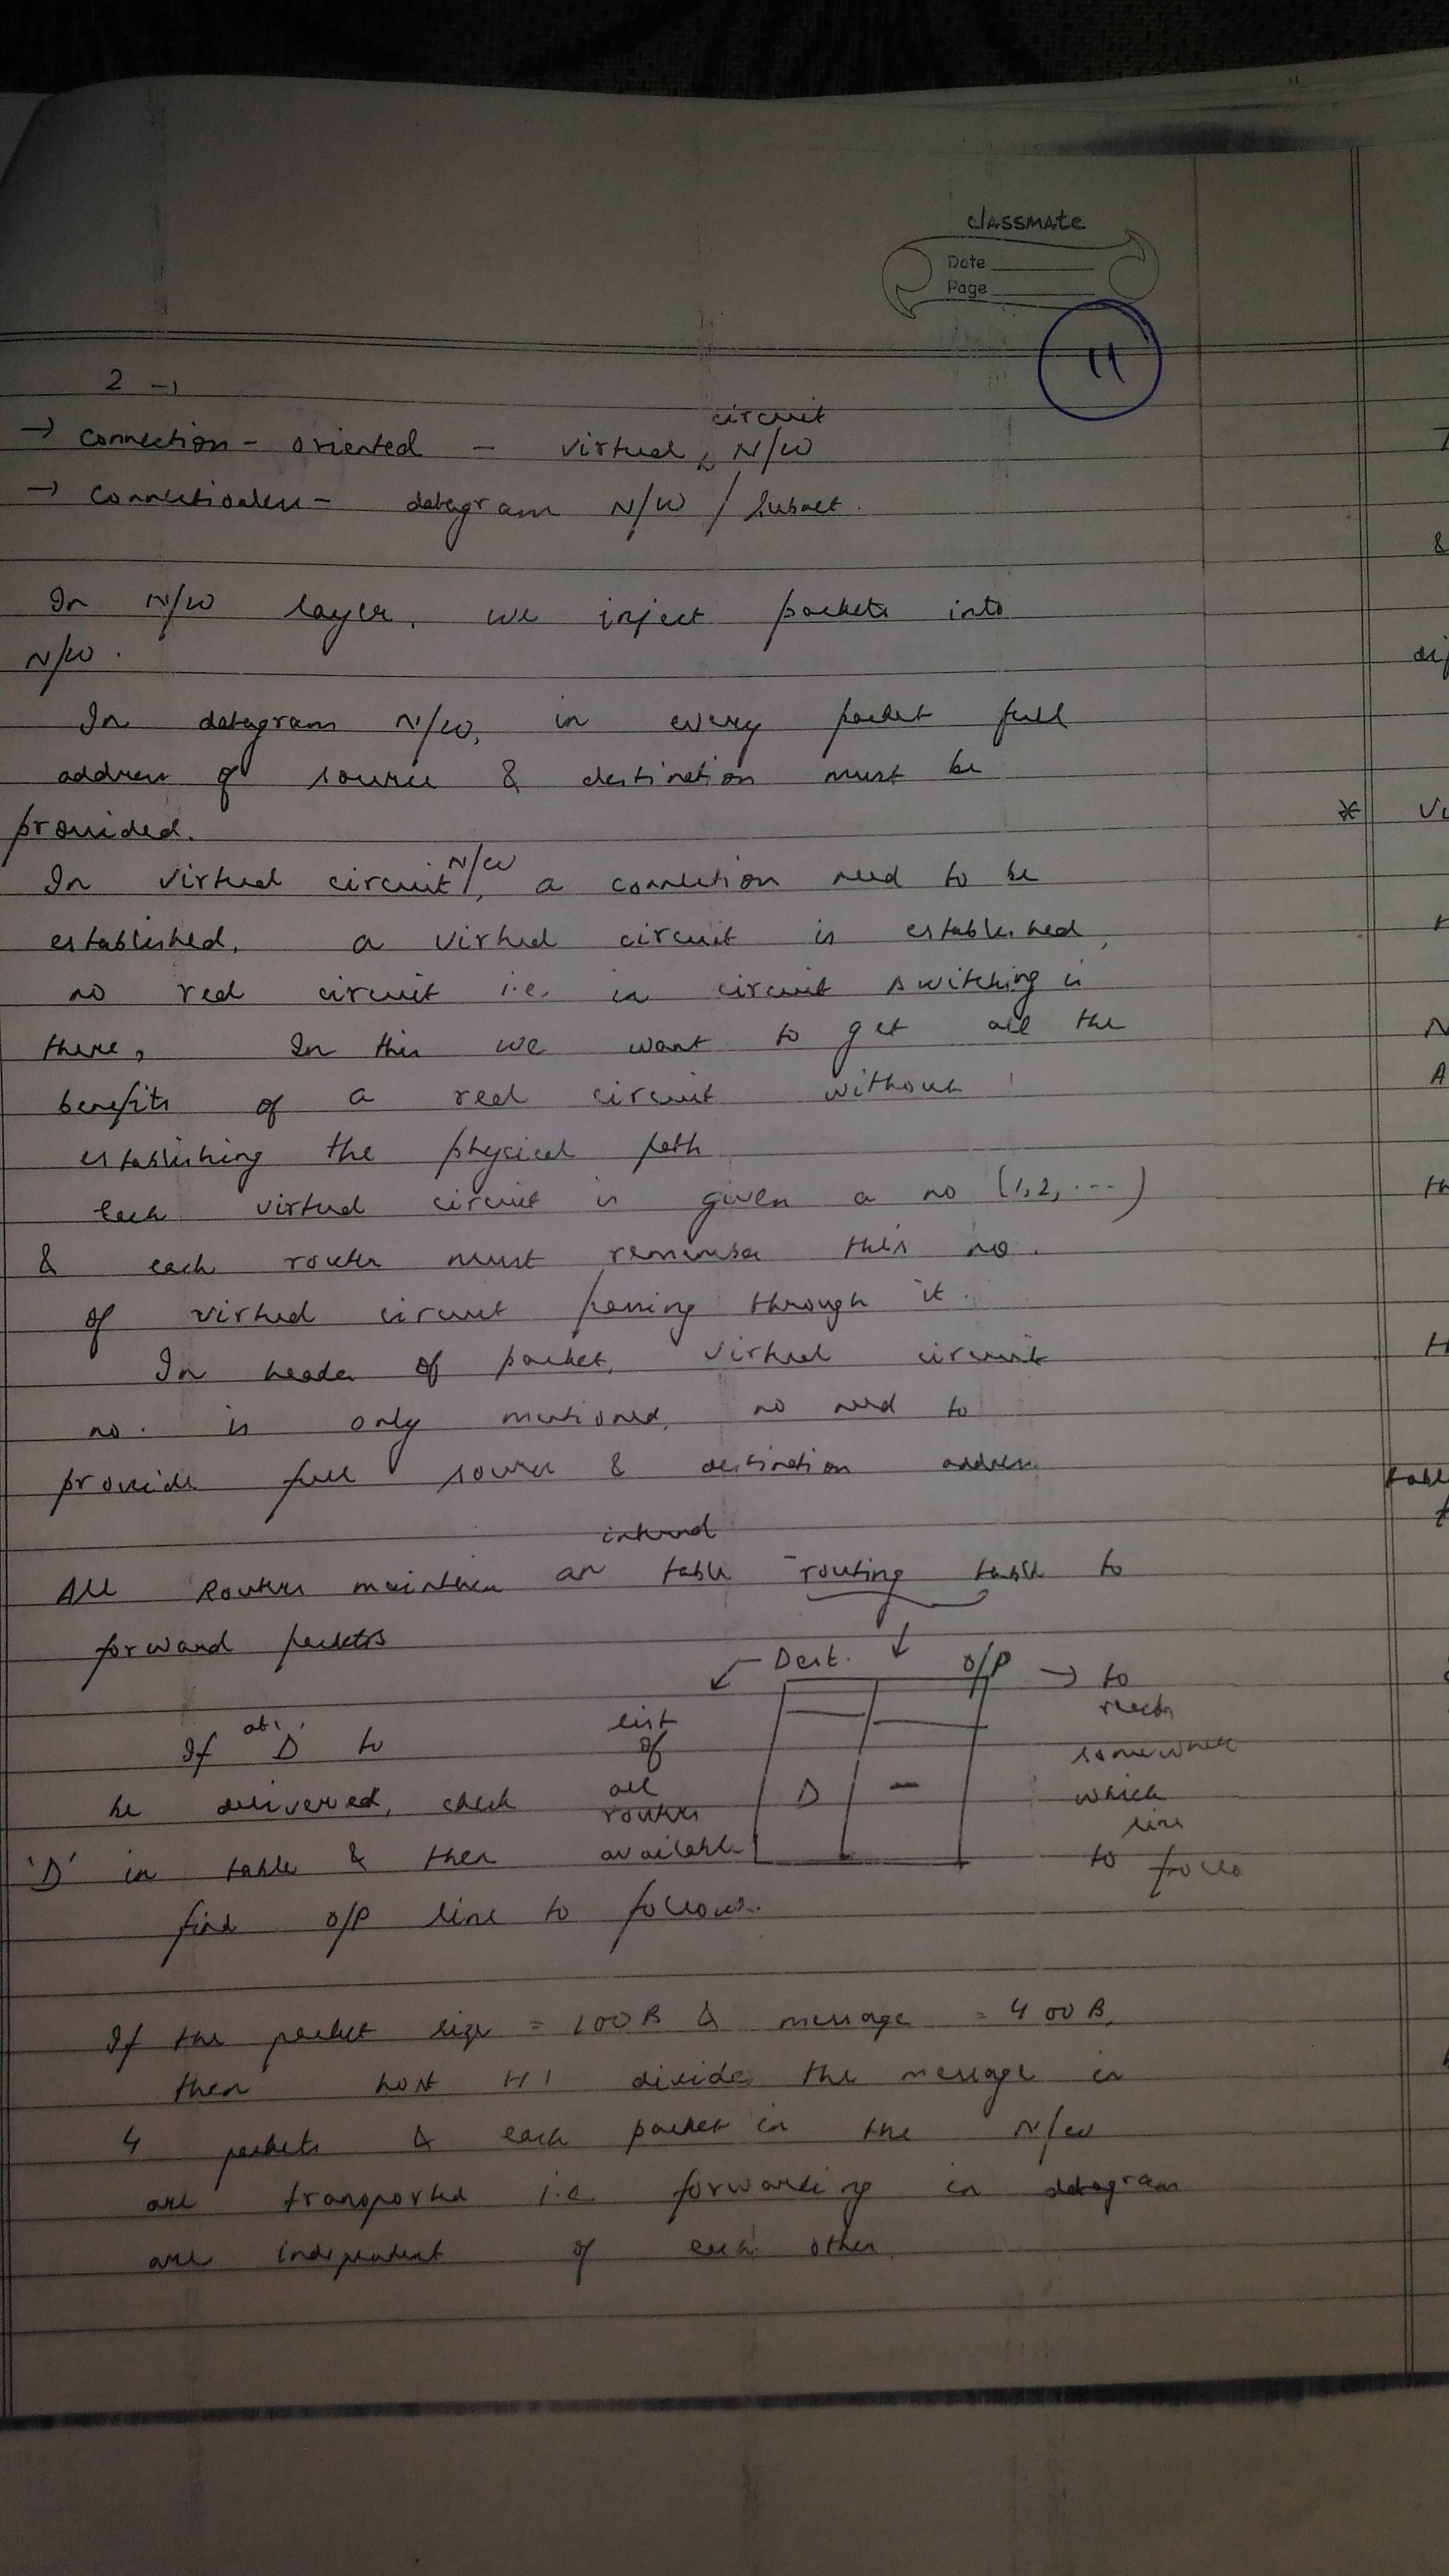 classmate
Date
Page
11
2 →
→ Connection - oriented - virtual circuit N/W
→ Connectionless - datagram N/W / Subnet.
In N/W layer, we inject packets into
N/W.
In datagram N/W, in every packet full
address of source & destination must be
provided.
In virtual circuit N/W, a connection need to be
established, a virtual circuit is established,
no real circuit i.e. in circuit switching is
there, In this we want to get all the
benefits of a real circuit without
establishing the physical path
Each virtual circuit is given a no (1,2, ...)
& each router must remember this no.
of virtual circuit passing through it.
In header of packet, virtual circuit
no. is only mentioned, no need to
provide full source & destination address
internal
All Routers maintain an table routing table to
forward packets
Dest. O/P → to
reach
somewhere
which
line
to follo
list
of
all
routers
available
D -
If 'D' to
be delivered, check
'D' in table & then
find O/P line to follow.
If the packet size = 100B & message = 400B,
then host H1 divide the message in
4 packets & each packet in the N/W
are transported i.e. forwarding in datagram
are independent of each other.
*
&
N
A
H